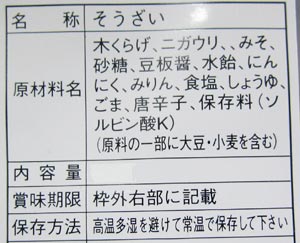 名称 そうざい
原材料名 木くらげ、ニガウリ、、みそ、
砂糖、豆板醤、水飴、にん
にく、みりん、食塩、しょうゆ、
ごま、唐辛子、保存料(ソ
ルビン酸K)
(原料の一部に大豆・小麦を含む)
内容量
賞味期限 枠外右部に記載
保存方法 高温多湿を避けて常温で保存して下さい